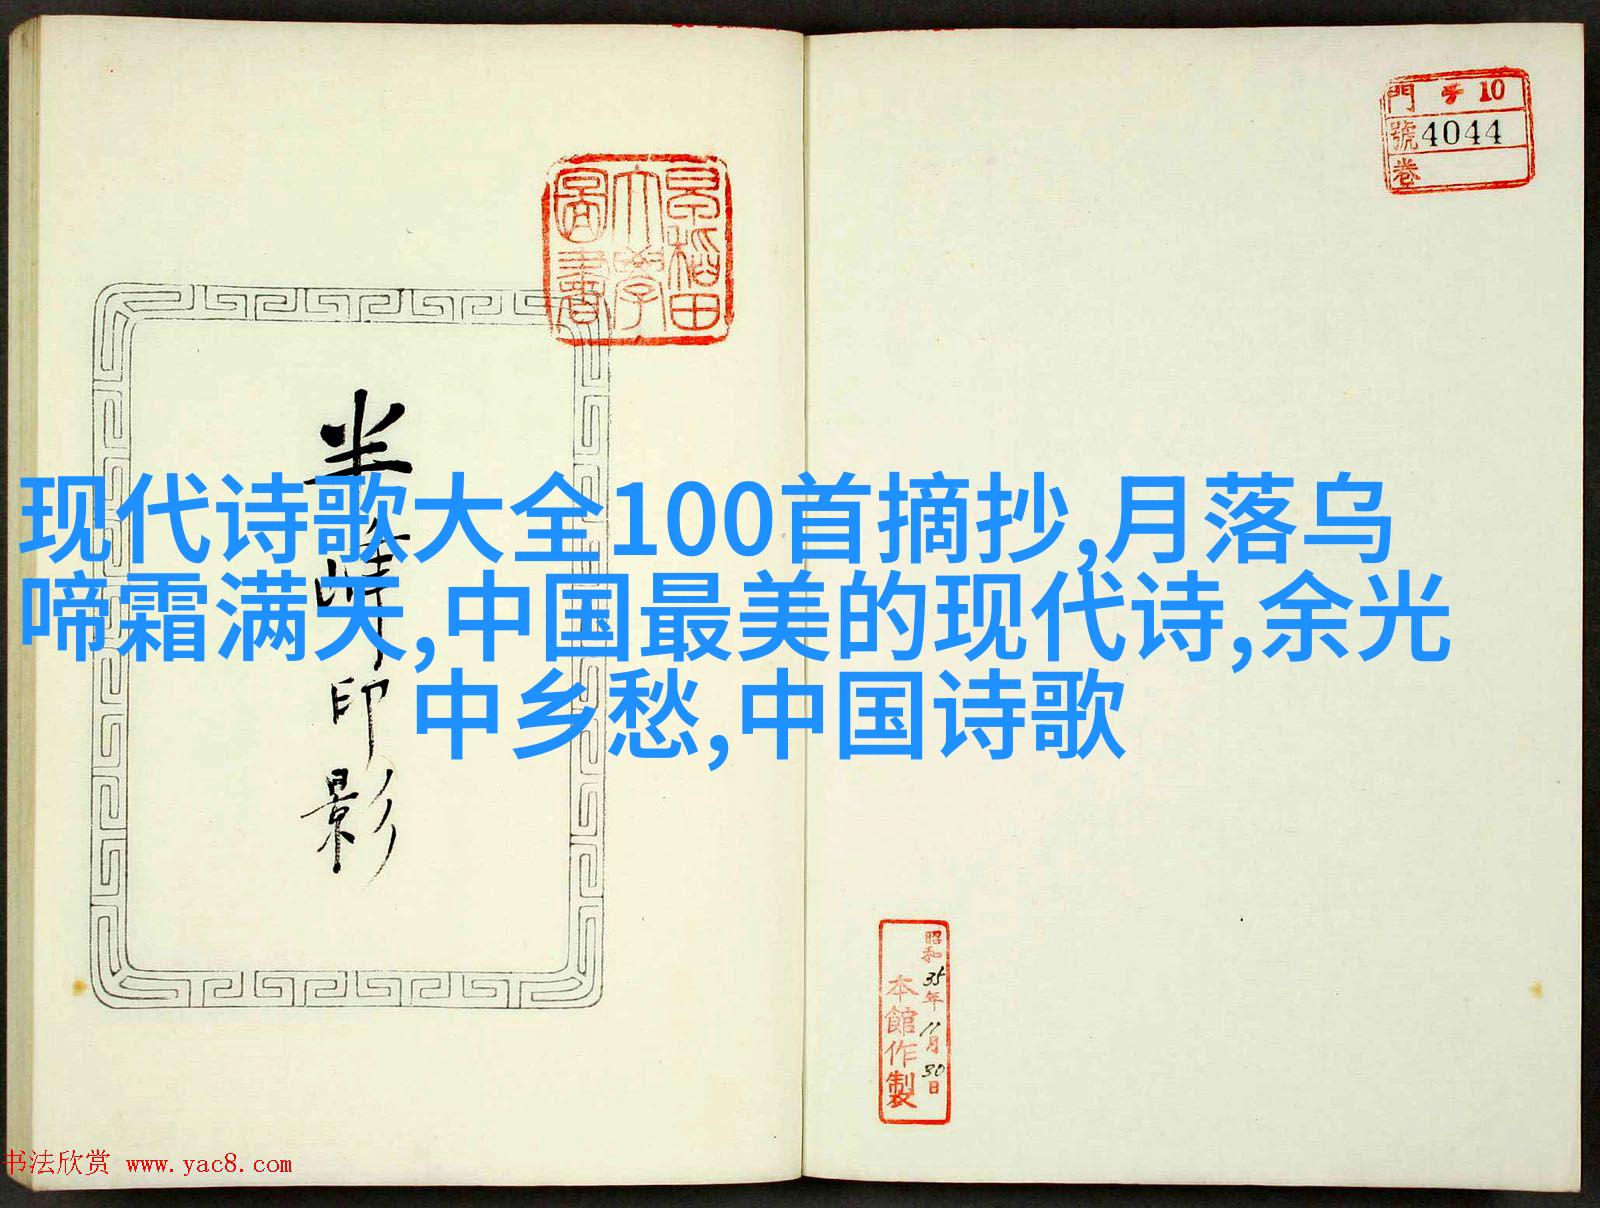 現代诗歌大全100首摘抄,月落乌
啼霜满天,中国最美的现代诗,余光
中乡愁,中国诗歌
早稻田
大學
圖書
門 チ 10
號 4044
卷
半
印
影
昭和35年11月30日
本館作製
书法欣赏 www.yac8.com